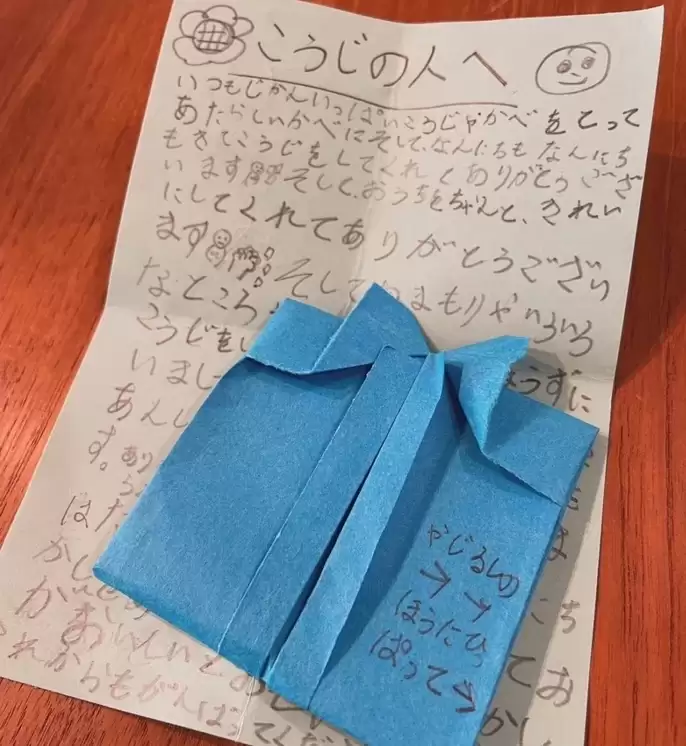 こうじの人へ
いつもじかんいっぱいこうじやかべをとって
あたらしいかべにそして、なんにちもなんにち
もきてこうじをしてくれてありがとうござ
います そして、おうちをちゃんと、きれい
にしてくれてありがとうござい
ます そして まもりやいろいろ
なところ
こうじを
いまし ようずに
あんし
す。あり
はた
かし こち
が おいしい てお
れからもがんばってくだ かし
やじるしの
→ →
ほうにひっ
ぱって→